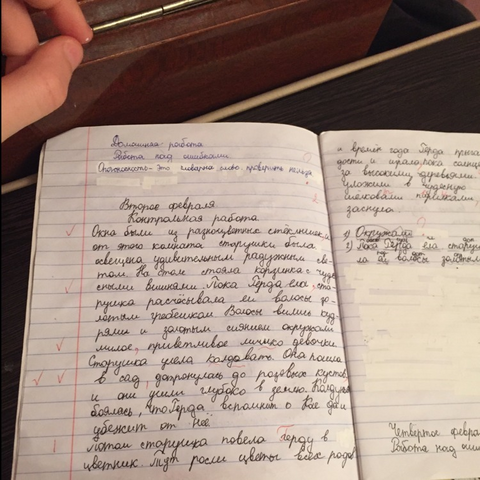 Домашняя работа
Работа над ошибками.
это словарна слово, проверить нельзя
Второе февраля
Контрольная работа
Окна были из разноцветных стёклышек, и
от этого комната старушки была
освещена удивительным радужным све-
том. На стояла корзинка с чуде-
сными вишнями. Пока Герда ела, ста-
рушка расчёсывала ей волосы зо-
лотым гребешком Волосы вились куд-
рями и золотым сиянием окружали
милое, приветливое личико девочки
Старушка умела колдовать. Она пошла
в сад, дотронулась до розовых кустов
и они ушли глубоко в землю. Колдунья
боялась, что Герда вспомнит о Кае да и
убежит от неё.
Потом старушка повела Герду в
цветник. Тут росли цветы всех
и времён года Герда
дости и играла, пока солнце
за высокими деревьями.
уложили в чудесную
шелковыми перинками,
заснула.
1) Окружали
2) Пока Герда ела старуш
ла ей волосы золотым
Четвёртое феврал
Работа над оши